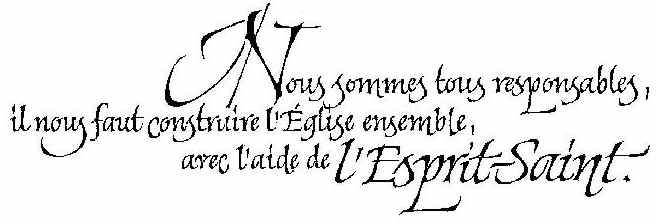 Nous sommes tous responsables,
il nous faut construire l'Église ensemble,
avec l'aide de l'Esprit-Saint.